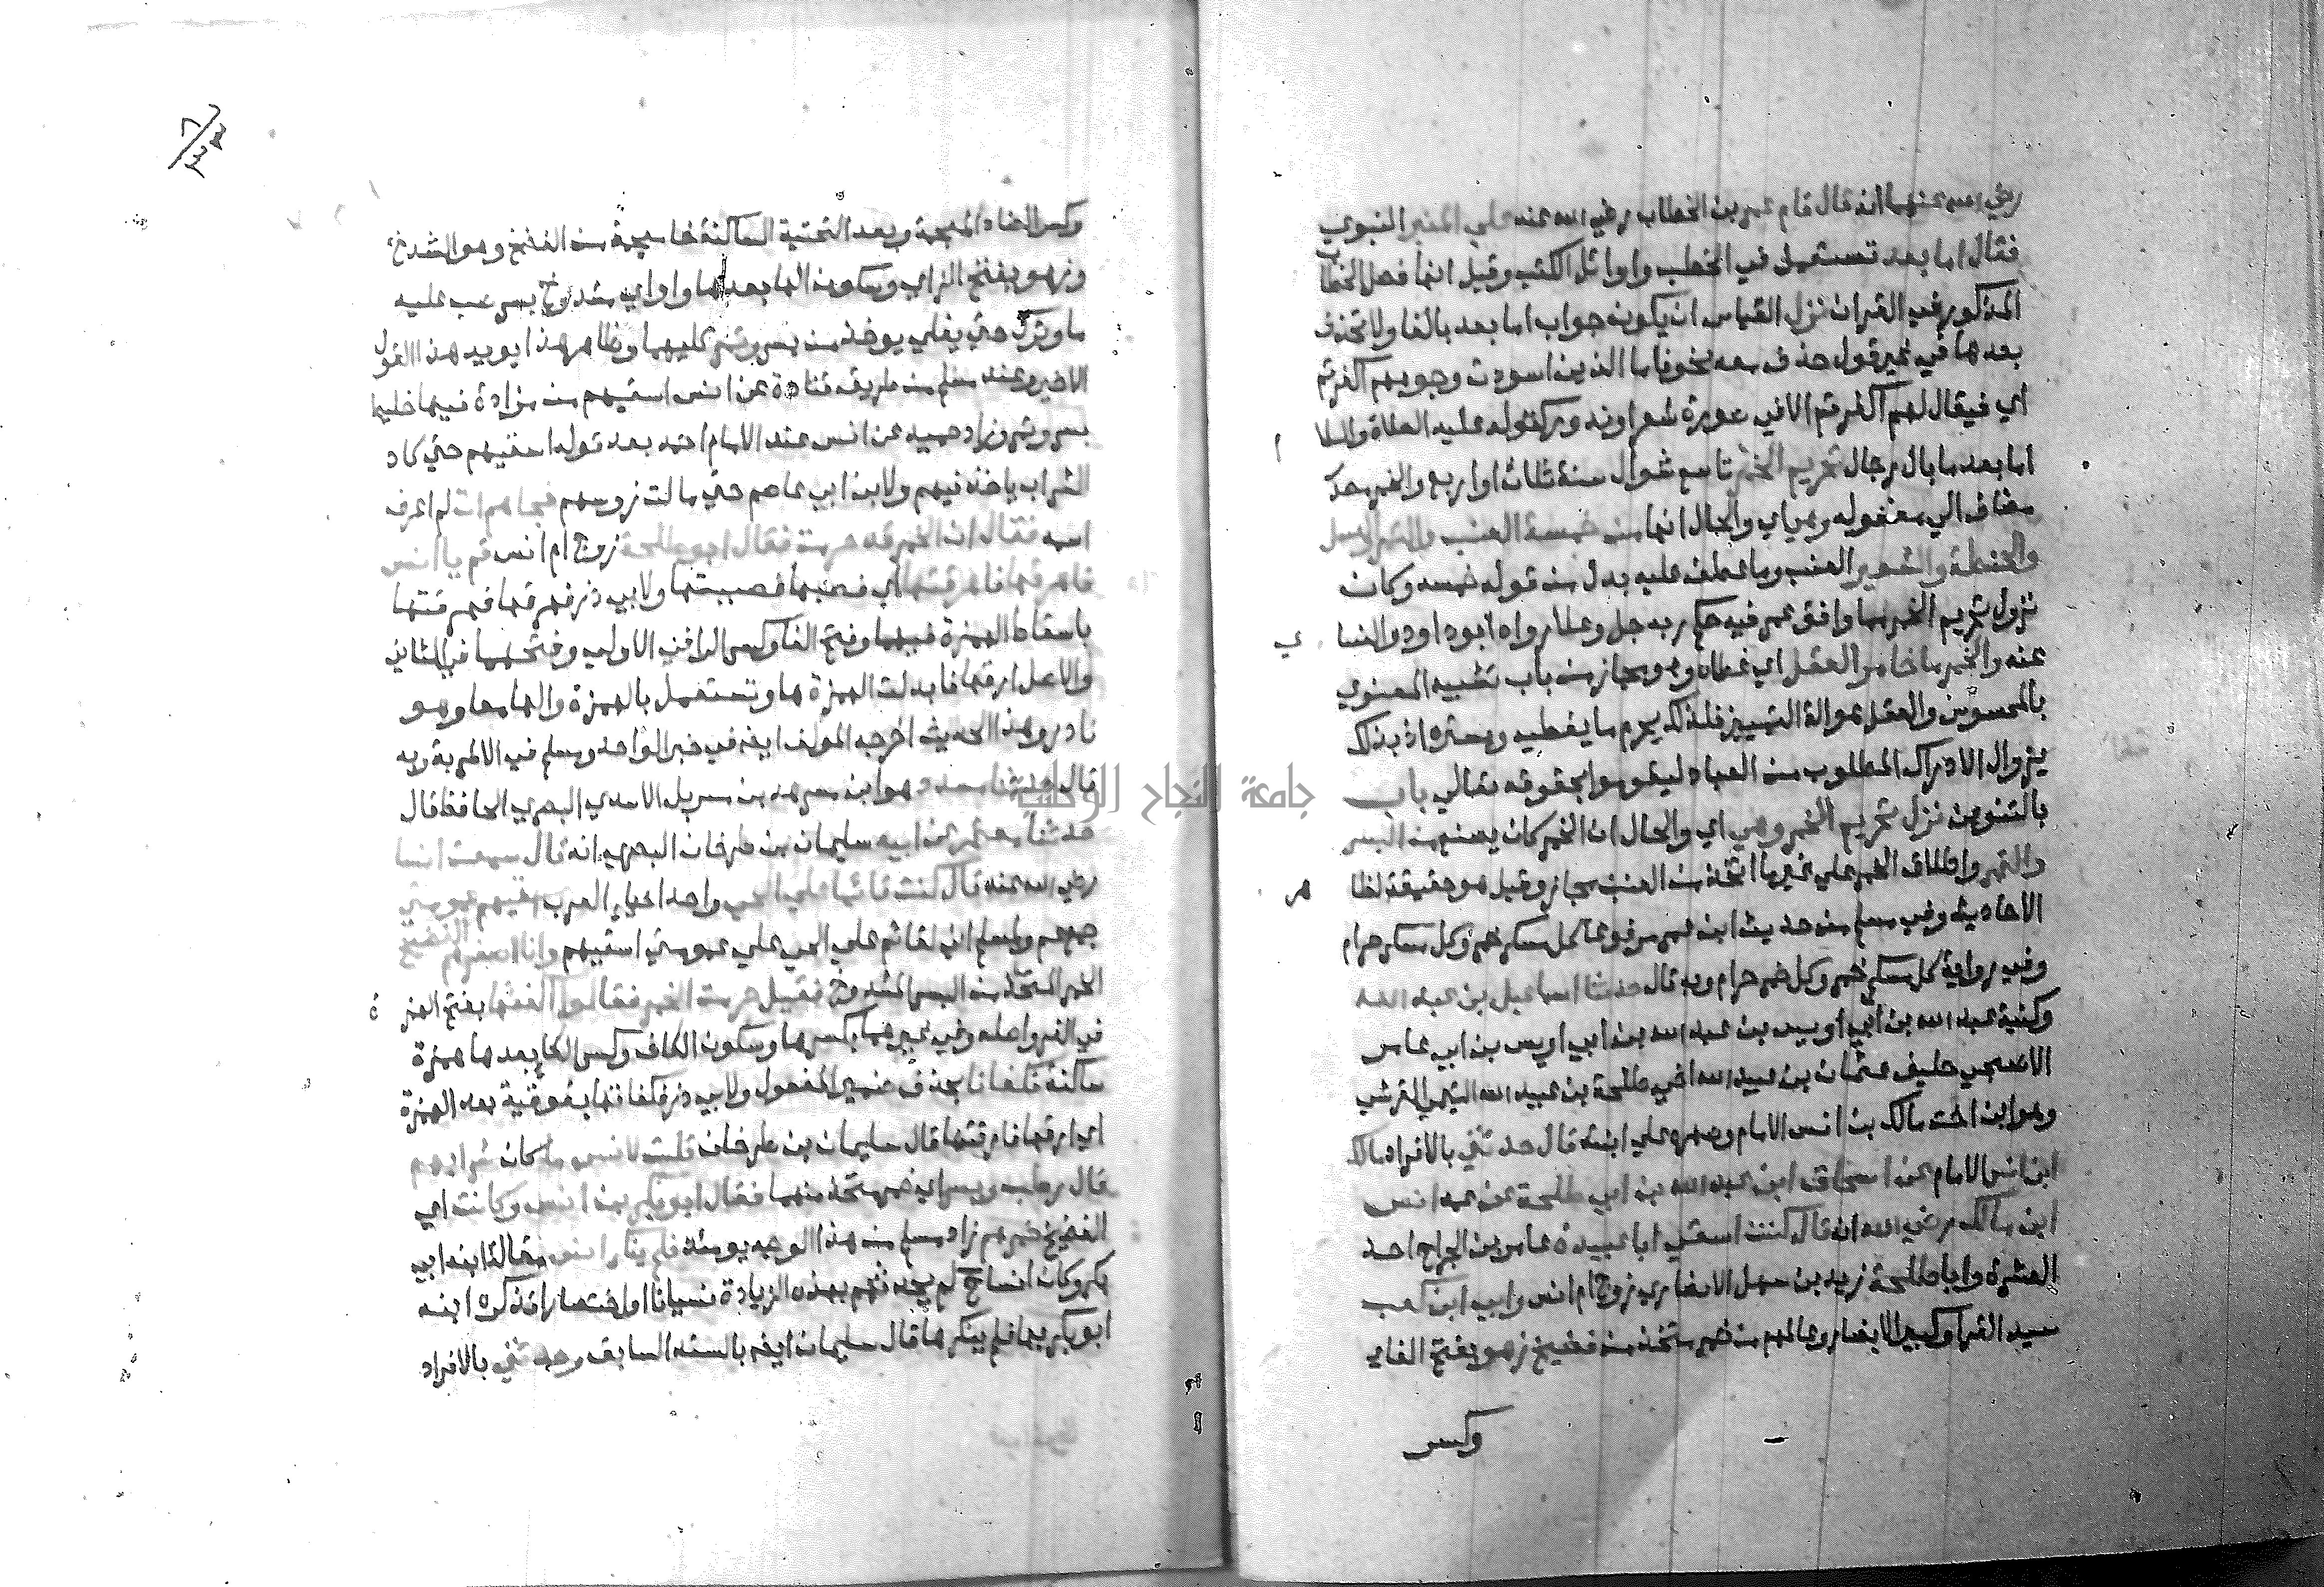 رضي الله عنهما انه قال قام عمر بن الخطاب رضي الله عنه علي المنبر النبوي
فقال اما بعد تستعمل في الخطب واوائل الكتب وقيل انها فصل الخطاب
المذكور في القران نزل القياس ان يكون جواب اما بعد بالفا ولا تحذف
بعدها في غير قول حذف معه نحو فاما الذين اسودت وجوههم اكفرتم
أي فيقال لهم اكفرتم الا في ضرورة شعر او ندور كقوله عليه الصلاة والسلا م
اما بعد ما بال رجال تحريم الخمر تاسع شوال سنة ثلاث او اربع والخمر مصدر
مضاف الي مفعوله وهي اي والحال انها من خمسة العنب والتمر والعسل
والحنطة والشعير العنب وما عطف عليه بدل من قوله خمسه وكان
نزول تحريم الخمر مما وافق عمر فيه حكم ربه جل وعلا رواه ابوداود والنسا ي
عنه والخمر ما خامر العقل اي غطاه وهو مجاز من باب تشبيه المعنوي
بالمحسوس والعقل هو الة التمييز فلذلك يحرم ما يغطيه ويستره اذ بذلك
يزوال الادراك المطلوب من العباد ليقوموا بحقوقه تعالي باب
بالتنوين نزل تحريم الخمر وهي اي والحال ان الخمر كان يصنع من البسر
والتمر واطلاق الخمر علي غير ما اتخذ من العنب مجاز وقيل هو حقيقة لظا هر
الاحاديث وفي مسلم من حديث ابن عمر مرفوعا كل مسكر خمر وكل مسكر حرام
وفي رواية كل مسكر خمر وكل خمر حرام وبه قال حدثنا اسماعيل بن عبد الله
وكنية عبد الله بن ابي اويس بن عبد الله بن ابي اويس بن ابي عامر
الاصبحي حليف عثمان بن عبيد الله اخي طلحة بن عبيد الله التيمي القرشي
وهو ابن اخت مالك بن انس الامام وصهره علي ابنته قال حدثني بالافراد مالك
ابن انس الامام عن اسحاق ابن عبد الله بن ابي طلحة عن عمه انس
ابن مالك رضي الله انه قال كنت اسقي ابا عبيدة عامر بن الجراح احد
العشرة وابا طلحة زيد بن سهل الانصاري زوج ام انس وابي ابن كعب
سيد القرا وكبير الانصار وعالمهم من خمر متخذ من فضيخ زهو بفتح الفاي
وكسر
وكسر الضاد المعجمة وبعد التحتية الساكنة خا معجمة من الفضخ وهو الشدخ
وزهو بفتح الزاي وسكون الها بعدها واو اي مشدوخ بسر صب عليه
ما وترك حتي يغلي يوخذ من بسر وتمر كليهما وظاهر هذا يويد هذا القول
الاخير وعند مسلم من طريق قتادة عن انس اسقيهم من مزادة فيها خليط
بسر وتمر وزاد حميد عن انس عند الامام احمد بعد قوله اسقيهم حتي كاد
الشراب ياخذ فيهم ولابن ابي عاصم حتي مالت روسهم فجاهم ات لم اعرف
اسمه فقال ان الخمر قد حرمت فقال ابو طلحة زوج ام انس قم يا انس
فاهرقها فاهرقتها أي فصبها فصببتها ولابي ذر فهرقها فهرقتها
باسقاط الهمزة فيهما وفتح الفا وكسر الرا في الاولي وفتحهما في الثاني
والاصل ارقها فابدلت الهمزة ها وتستعمل بالهمزة والها معا وهو
نادر وهذا الحديث اخرجه المولف ايضا في خبر الواحد ومسلم في الاشربة وبه
قال حدثنا مسدد هو ابن مسرهد بن مسربل الاسدي البصري الحافظ قال
حدثنا معتمر عن ابيه سليمان بن طرخان البصري انه قال سمعت انسا
رضي الله عنه قال كنت قائما علي الحي واحد احياء العرب اسقيهم عمومتي
جمع عم ولمسلم اني لقائم علي الحي علي عمومتي اسقيهم وانا اصغرهم الفضيخ
الخمر المتخذ من البسر المشدوخ فقيل حرمت الخمر فقالوا اكفئها بفتح الهمز ة
في الفرع واصله وفي غيرهما بكسرها وسكون الكاف وكسر الفا بعدها همزة
ساكنة فكفانا بحذف ضمير المفعول ولابي ذر فكفاتها بفوقية بعد الهمزة
اي ارقها فارقتها قال سليمان بن طرخان قلت لانس ما كان شرابهم
قال رطب وبسر اي خمر متخذ منهما فقال ابو بكر بن انس وكانت اي
الفضيخ خمرهم زاد مسلم من هذا الوجه يومئذ فلم ينكر انس مقالة ابنه ابي
بكر وكان انسا ح لم يحدثهم بهذه الزيادة نسيانا او اختصارا فذكره ابنه
ابو بكر بها فلم ينكرها قال سليمان ايضا بالسند السابق وحدثني بالافراد
جامعة النجاح الوطنية